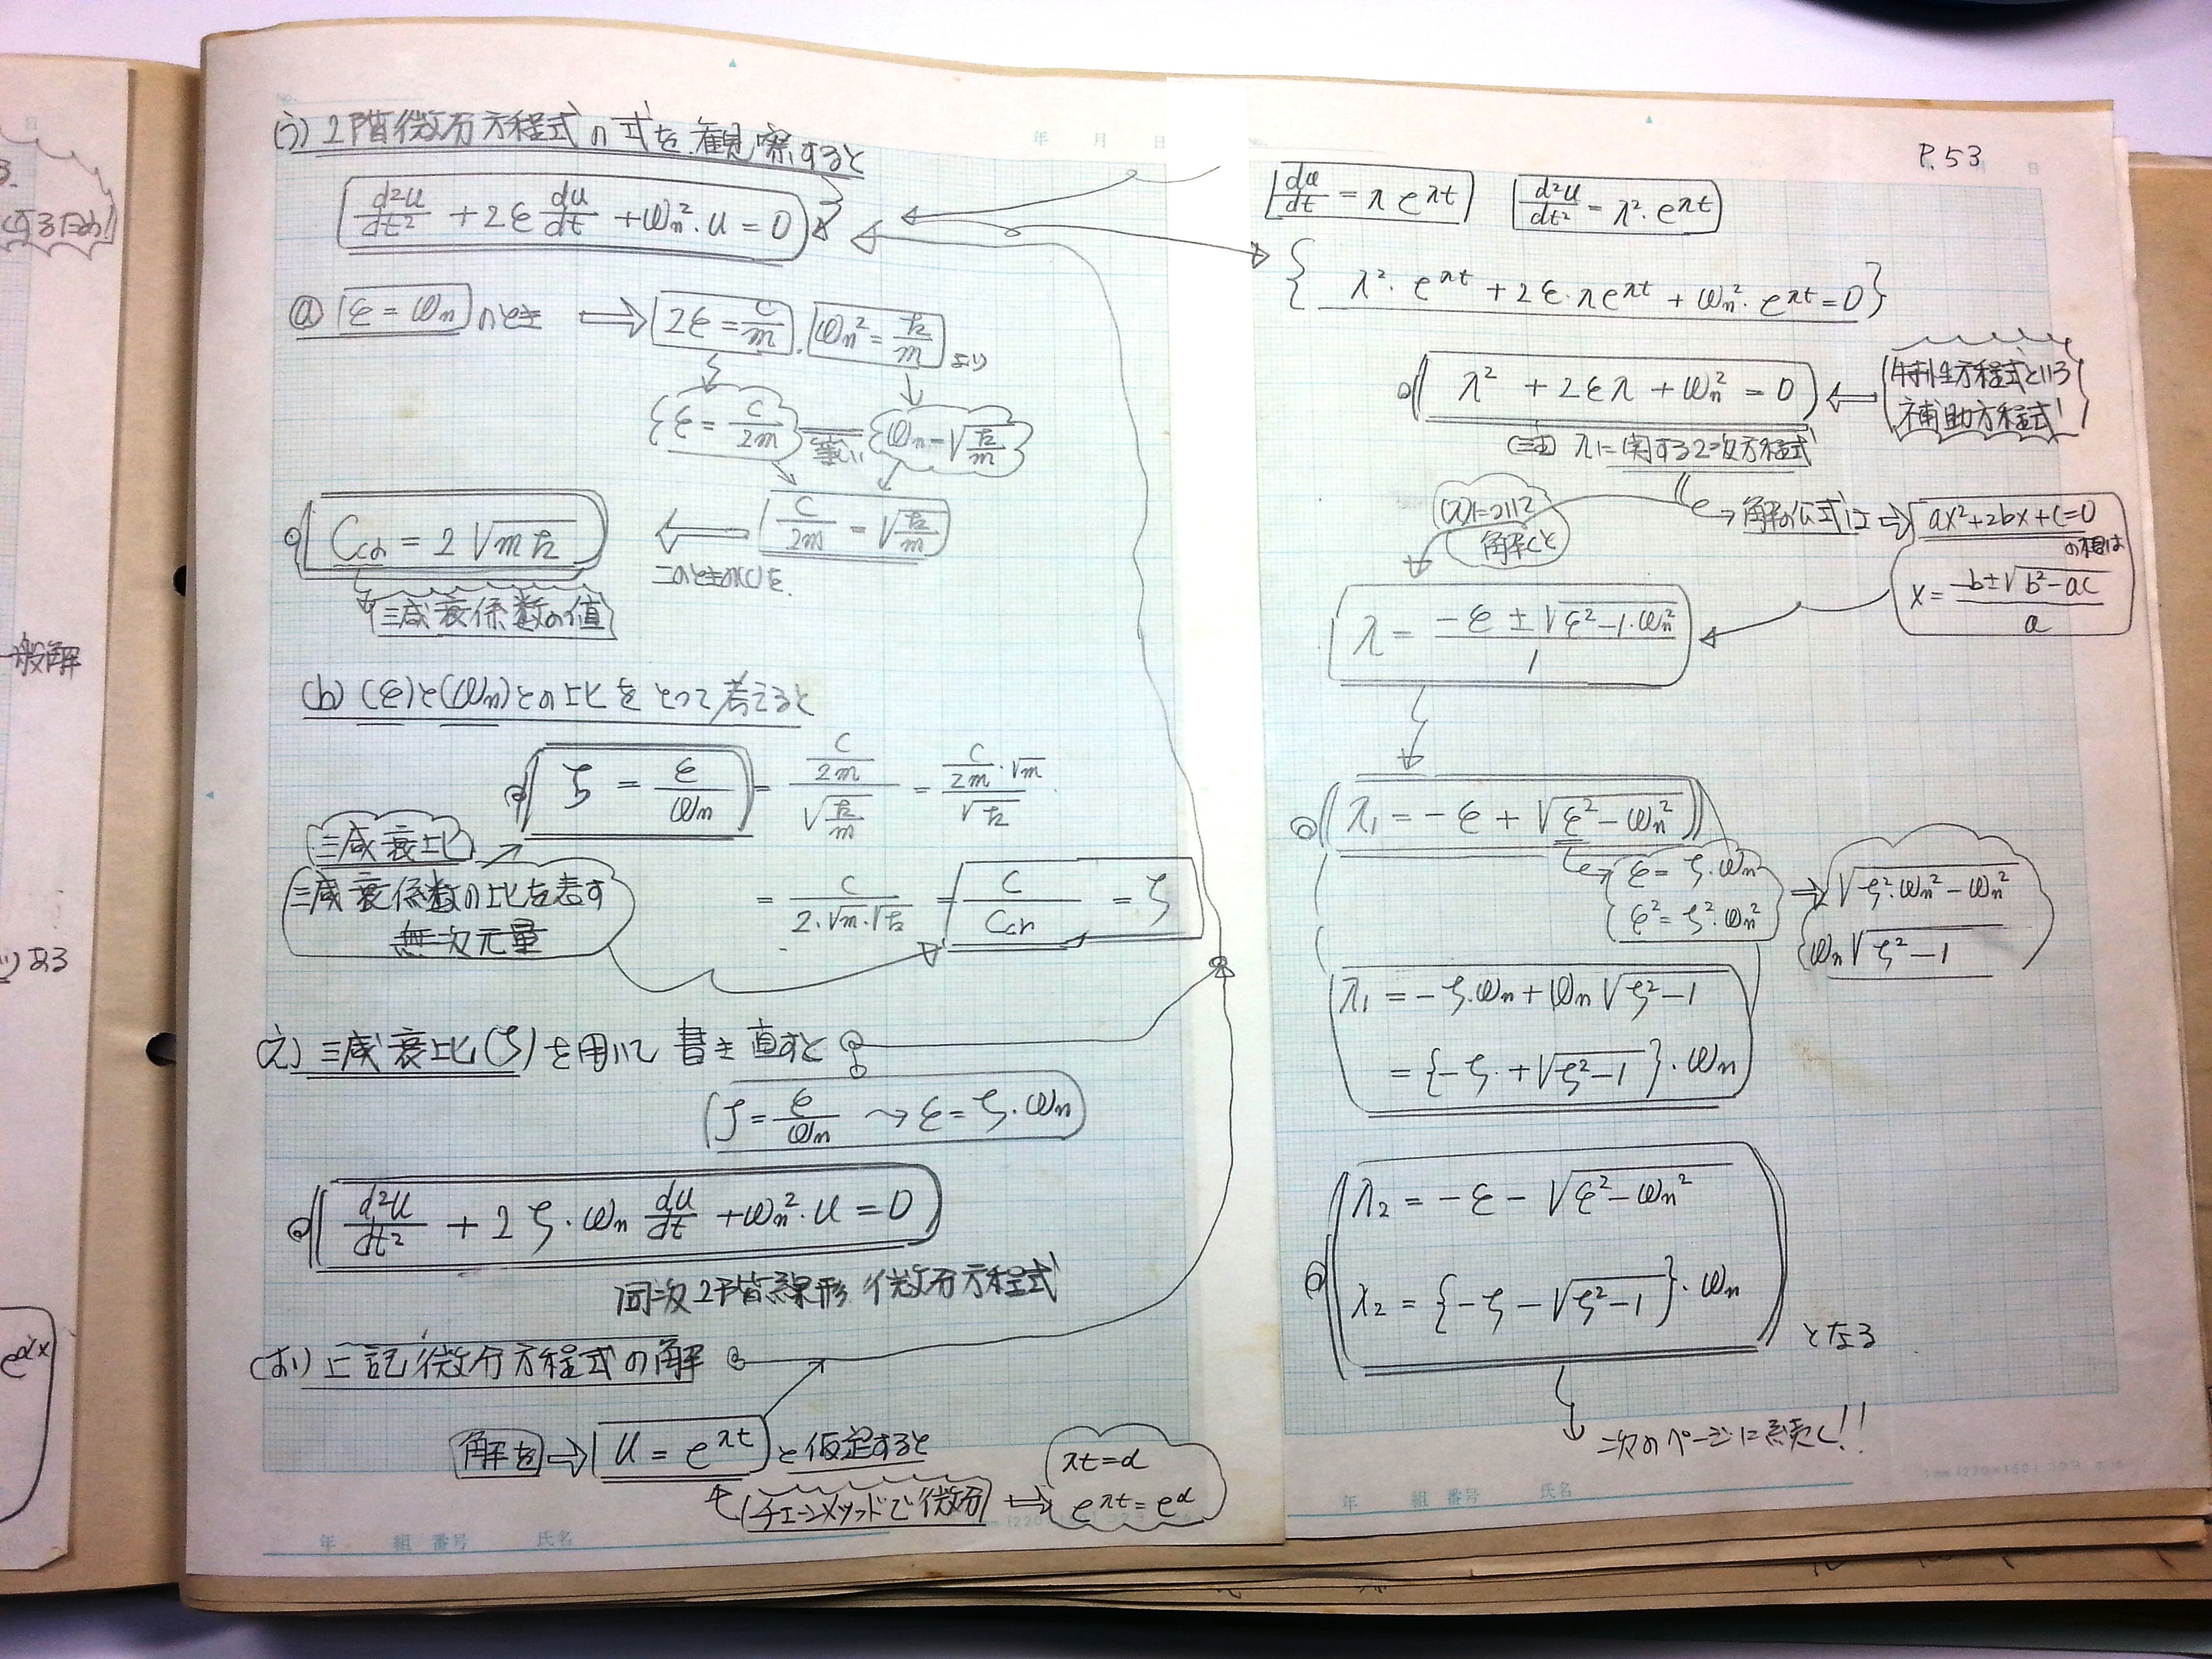 (う) 2階微分方程式の式を観察すると
d²u/dt² + 2ε du/dt + ωn²・u = 0
ⓐ ε = ωn のとき ⇒ 2ε = c/m . ωn² = k/m より
ε = c/2m 等しい ωn = √(k/m)
c/2m = √(k/m)
このときの(c)を
Ccr = 2√mk
減衰係数の値
(b) (ε)と(ωn)との比をとって考えると
ζ = ε/ωn = (c/2m)/√(k/m) = (c/2m・√m)/√k
減衰比
減衰係数の比を表す
無次元量
= c/(2・√m・√k) = c/Ccr = ζ
(え) 減衰比(ζ)を用いて書き直すと
ζ = ε/ωn → ε = ζ・ωn
d²u/dt² + 2ζ・ωn du/dt + ωn²・u = 0
同次2階線形微分方程式
(お) 上記微分方程式の解
解を ⇒ u = e^λt と仮定すると
チェーンメソッドで微分 ⇒
λt = α
e^λt = e^α
P.53
du/dt = λ e^λt
d²u/dt² = λ²・e^λt
{ λ²・e^λt + 2ε・λe^λt + ωn²・e^λt = 0 }
λ² + 2ελ + ωn² = 0
特性方程式という
補助方程式
(注) λに関する2次方程式
(λ)について
解くと
→ 解の公式は ⇒ ax²+2bx+c=0
の根は
x = (-b±√(b²-ac))/a
λ = (-ε ± √(ε²-1・ωn²))/1
λ₁ = -ε + √(ε²-ωn²)
ε = ζ・ωn
ε² = ζ²・ωn²
√(ζ²・ωn²-ωn²)
ωn√(ζ²-1)
λ₁ = -ζ・ωn + ωn√(ζ²-1)
= {-ζ + √(ζ²-1)}・ωn
λ₂ = -ε - √(ε²-ωn²)
λ₂ = {-ζ - √(ζ²-1)}・ωn
となる
次のページに続く!!
一般解
ある
e^αx
年 月 日
No.
年 組 番号 氏名
年 組 番号 氏名